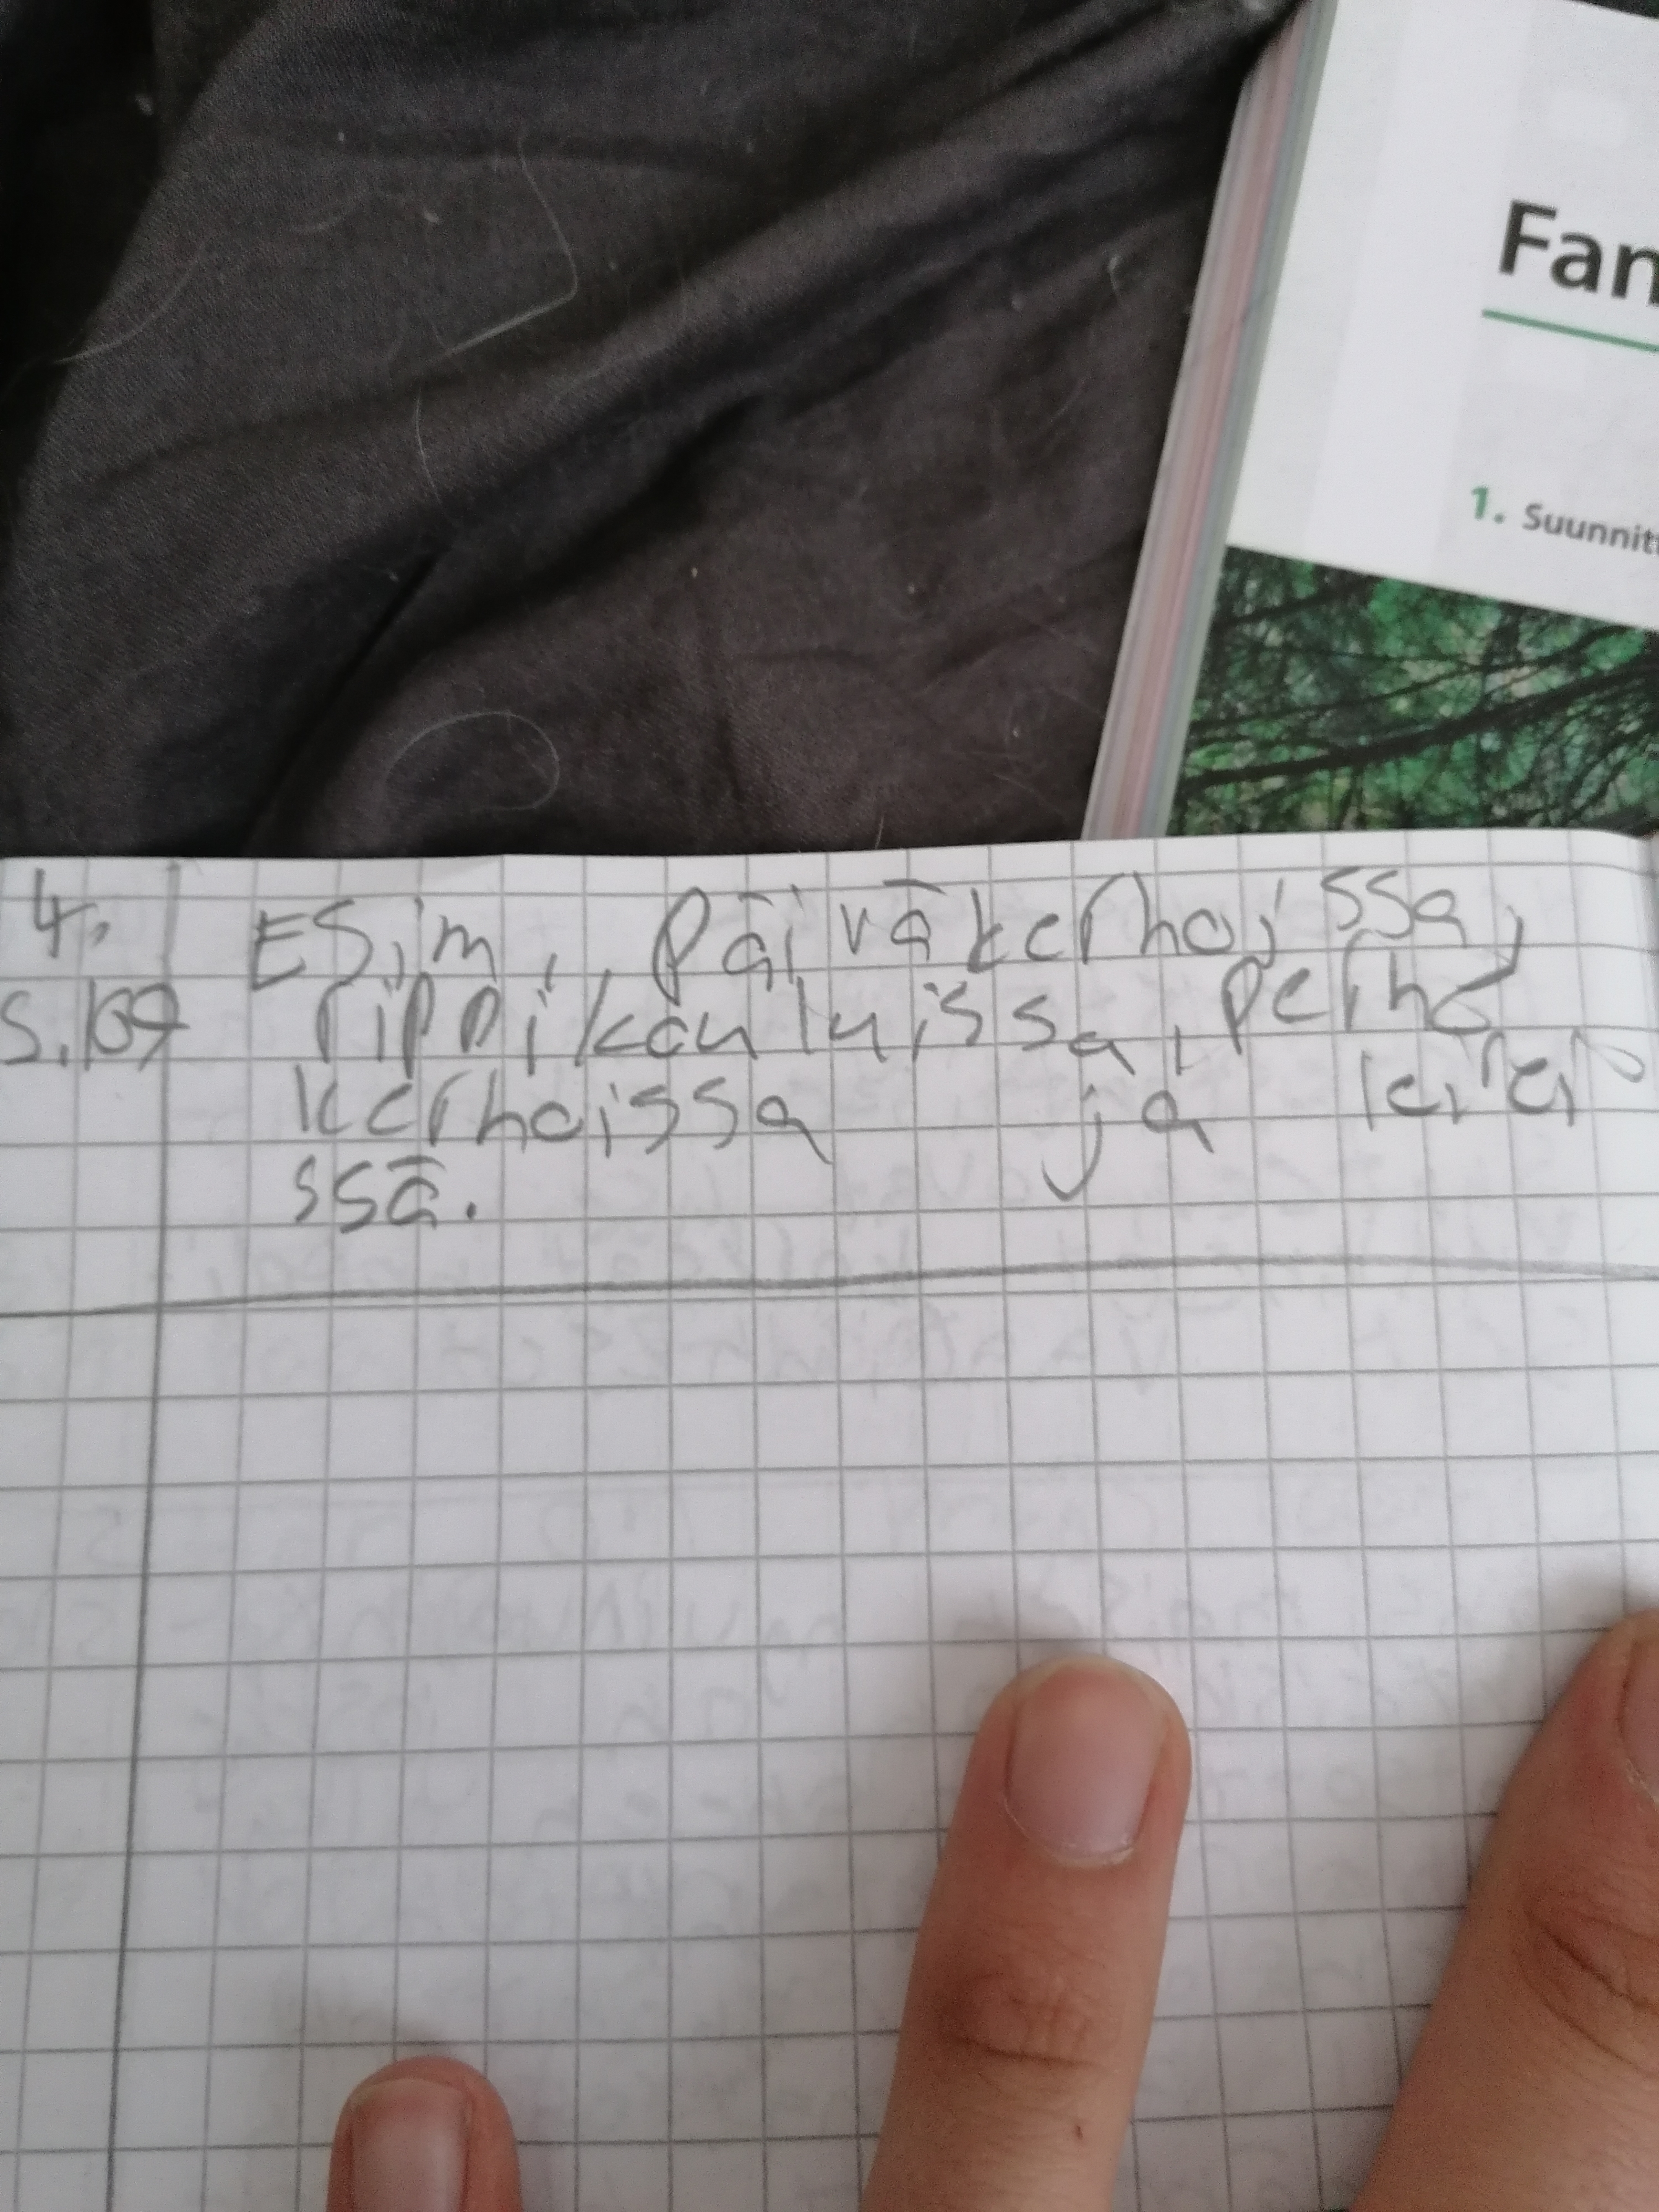 Fan
1. Suunnit
4. Esim. päiväkerhoissa,
s.169 rippikouluissa, perhe
kerhoissa ja leirei
ssä.